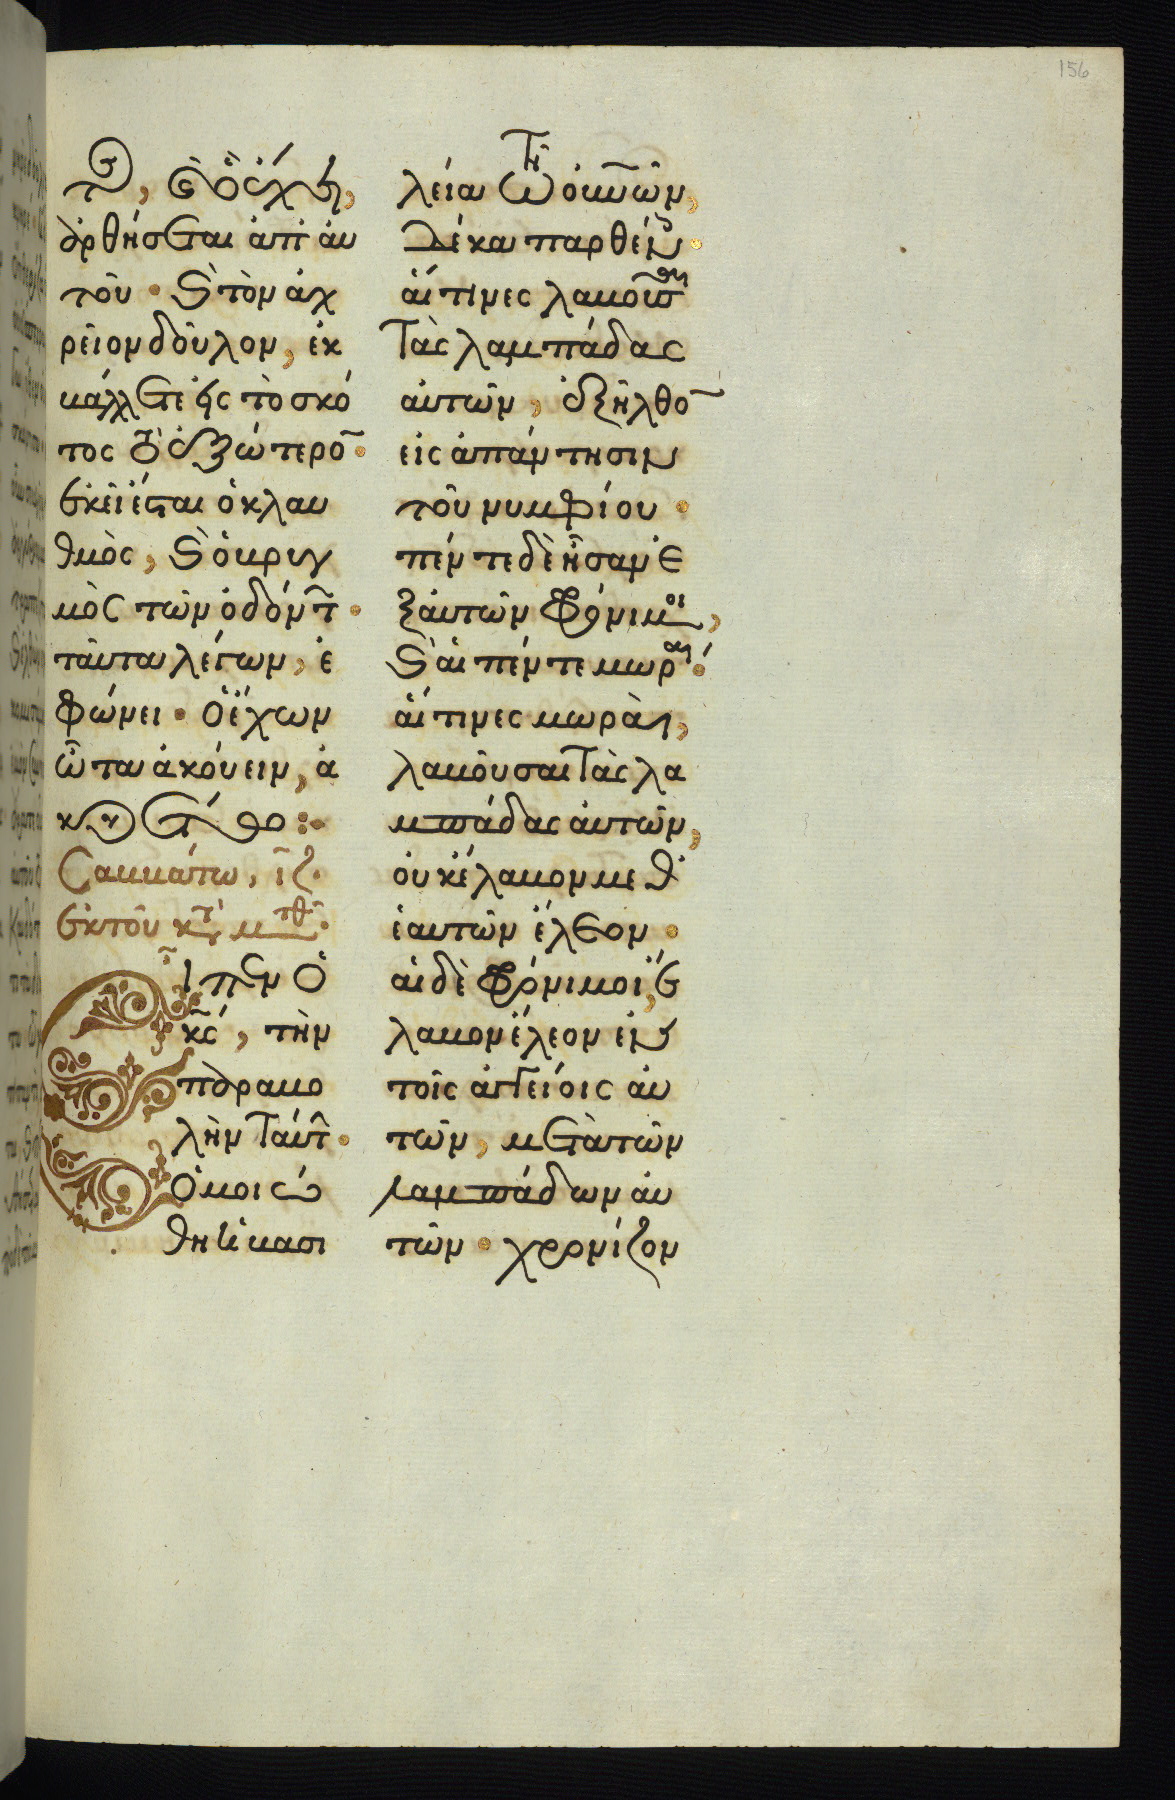 156
τος, καὶ ὃ ἔχει,
ἀρθήσεται ἀπ' αυ
τοῦ · καὶ τὸν ἀχ
ρεῖον δοῦλον, ἐκ
βάλλετε εἰς τὸ σκό
τος τὸ ἐξώτερο̅ ·
ἐκεῖ ἔσται ὁ κλαυ
θμὸς, καὶ ὁ βρυγ
μὸς τῶν ὀδόντ ·
ταῦτα λέγων, ἐ
φώνει · ὁ ἔχων
ὦτα ἀκούειν, ἀ
κουέτω :
Σαββάτω, ιζ ·
ἐκ τοῦ κτ μτθ ·
Εἶπεν ὁ
κς, τὴν
παραβο
λὴν ταύτ ·
Ὁμοιώ
θη ἡ βασι
λεία τῶν οὐνῶν,
δέκα παρθέν ·
αἵτινες λαβοῦσαι
τὰς λαμπάδας
αὐτῶν, ἐξῆλθο̅
εἰς ἀπάντησιν
τοῦ νυμφίου ·
πέντε δὲ ἦσαν ἐ
ξ αὐτῶν φρόνιμοι,
καὶ αἱ πέντε μωραί ·
αἵτινες μωραὶ,
λαβοῦσαι τὰς λα
μπάδας αὐτῶν,
οὐκ ἔλαβον μεθ'
ἑαυτῶν ἔλεον ·
αἱ δὲ φρόνιμοι, ἔ
λαβον ἔλεον ἐν
τοῖς ἀγγείοις αὐ
τῶν, μετὰ τῶν
λαμπάδων αὐ
τῶν · χρονίζον